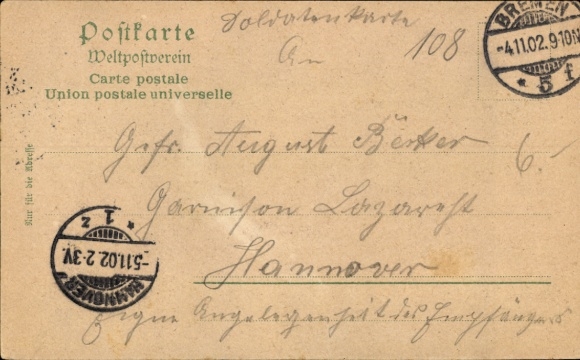 Soldatenkarte
Postkarte
Weltpostverein
An
108
Carte postale
Union postale universelle
BREMEN
-4.11.02.9-10N
* 5 f
Nur für die Adresse
Gefr. August Bekker
6.-
Garnison Lazareht
Hannover
HANNOVER
-5.11.02.2-3V.
* 1 z
Eigne Angelegenheit des Empfängers